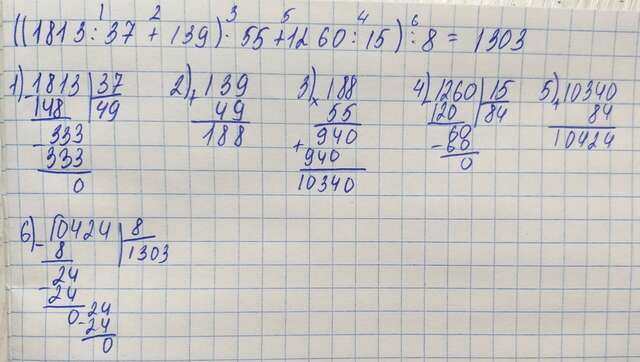 1 2 3 5 4 6
((1813:37+139)·55+1260:15):8=1303
1) 1813 37 2) 139 3) 188 4) 1260 15 5) 10340
- 148 49 + 49 × 55 - 120 84 + 84
- 333 188 940 - 60 10424
333 + 940 60
0 10340 0
6) 10424 8
- 8 1303
24
- 24
0 24
- 24
0